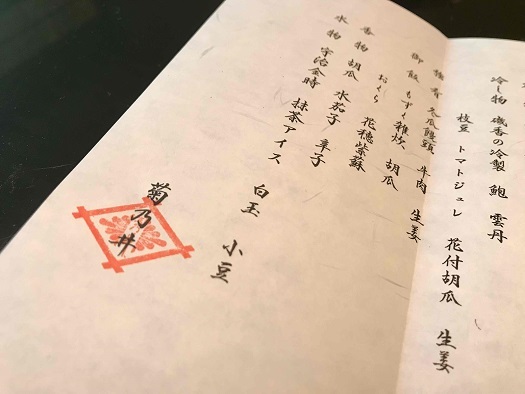 冷し物 磯香の冷製 鮑 雲丹
枝豆 トマトジュレ 花付胡瓜 生姜
強肴 冬瓜饅頭 牛肉 生姜
御飯 もずく雑炊 胡瓜
おくら 花穂紫蘇
香物 胡瓜 水茄子 辛子
水物 宇治金時 抹茶アイス 白玉 小豆
菊乃井